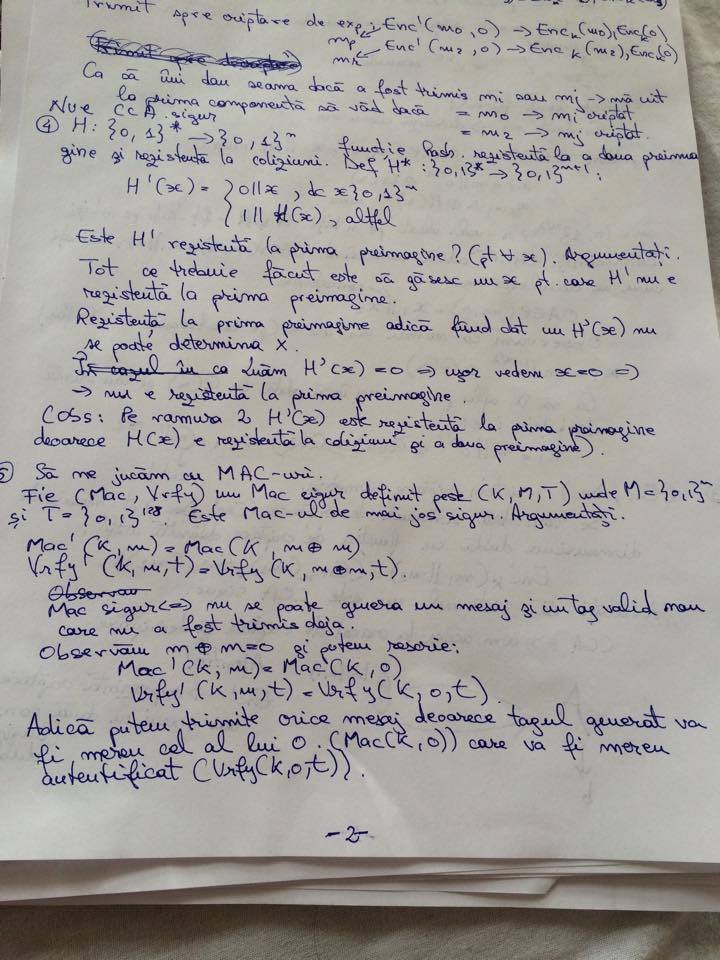 Trimit spre criptare de exp: Enc'(m0, 0) → Enck(m0), Enck(0)
mp Enc'(m2, 0) → Enck(m2), Enck(0)
mr
Ca să îmi dau seama dacă a fost trimis mi sau mj → mă uit
la prima componentă să văd dacă = m0 → mi criptat
Nu e CCA sigur = m2 → mj criptat.
④ H: {0,1}* → {0,1}^n funcție hash rezistentă la a doua preima
gine și rezistentă la coliziuni. Def H*: {0,1}* → {0,1}^n+1:
H'(x) = { 0||x, dc x{0,1}^n
{ 1||H(x), altfel
Este H' rezistentă la prima preimagine? (pt ∀ x). Argumentați.
Tot ce trebuie făcut este să găsesc un x pt. care H' nu e
rezistentă la prima preimagine.
Rezistență la prima preimagine adică fiind dat un H'(x) nu
se poate determina x.
În cazul în ca Luăm H'(x) = 0 ⇒ ușor vedem x=0 ⇒
→ nu e rezistentă la prima preimagine
(Obs: Pe ramura 2 H'(x) este rezistentă la prima preimagine
deoarece H(x) e rezistentă la coliziuni și a doua preimagine).
5 Să ne jucăm cu MAC-uri.
Fie (Mac, Vrfy) un Mac sigur definit peste (K, M, T) unde M = {0,1}^n
și T = {0,1}^128. Este Mac-ul de mai jos sigur. Argumentați.
Mac'(K, m) = Mac(K, m ⊕ m)
Vrfy'(K, m, t) = Vrfy(K, m⊕m, t).
Observăm
Mac sigur ⇔ nu se poate genera un mesaj și un tag valid nou
care nu a fost trimis deja.
Observăm m ⊕ m = 0 și putem rescrie:
Mac'(K, m) = Mac(K, 0)
Vrfy'(K, m, t) = Vrfy(K, 0, t)
Adică putem trimite orice mesaj deoarece tagul generat va
fi mereu cel al lui 0. (Mac(K, 0)) care va fi mereu
autentificat (Vrfy(K, 0, t)).
-2-